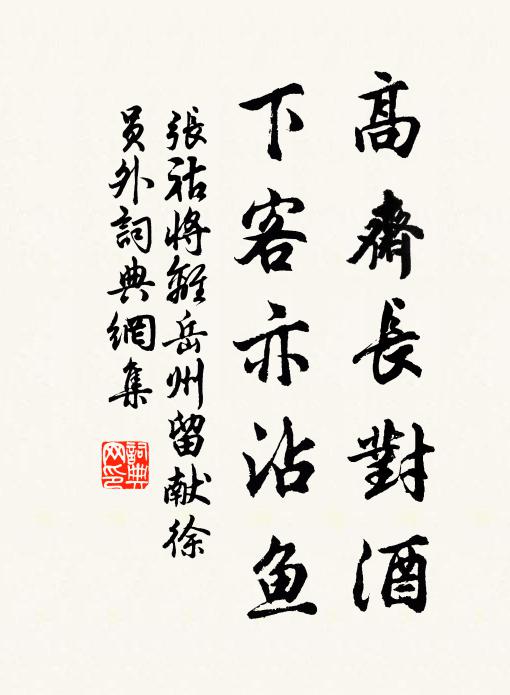 高齋長對酒
下客亦沾鱼
張祜將離岳州留献徐
員外詞典網集
詞典
网印